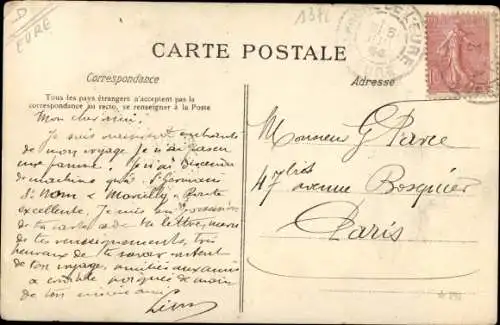 D
EURE
CARTE POSTALE
Correspondance
Adresse
Tous les pays étrangers n'acceptent pas la
correspondance au recto, se renseigner à la Poste
Mon cher ami!
Je suis vraiment enchanté
de mon voyage je n'ai pas eu
une panne. Je n'ai descendu
de machine qu'à St Germain
St Nom & Route
excellente. Je suis en possession
de ta carte & de ta lettre, merci
de tes renseignements, très
heureux de te savoir content
de ton voyage, amitiés aux amis
de ton
Léon
Monsieur G
47 bis avenue Bosquet
Paris